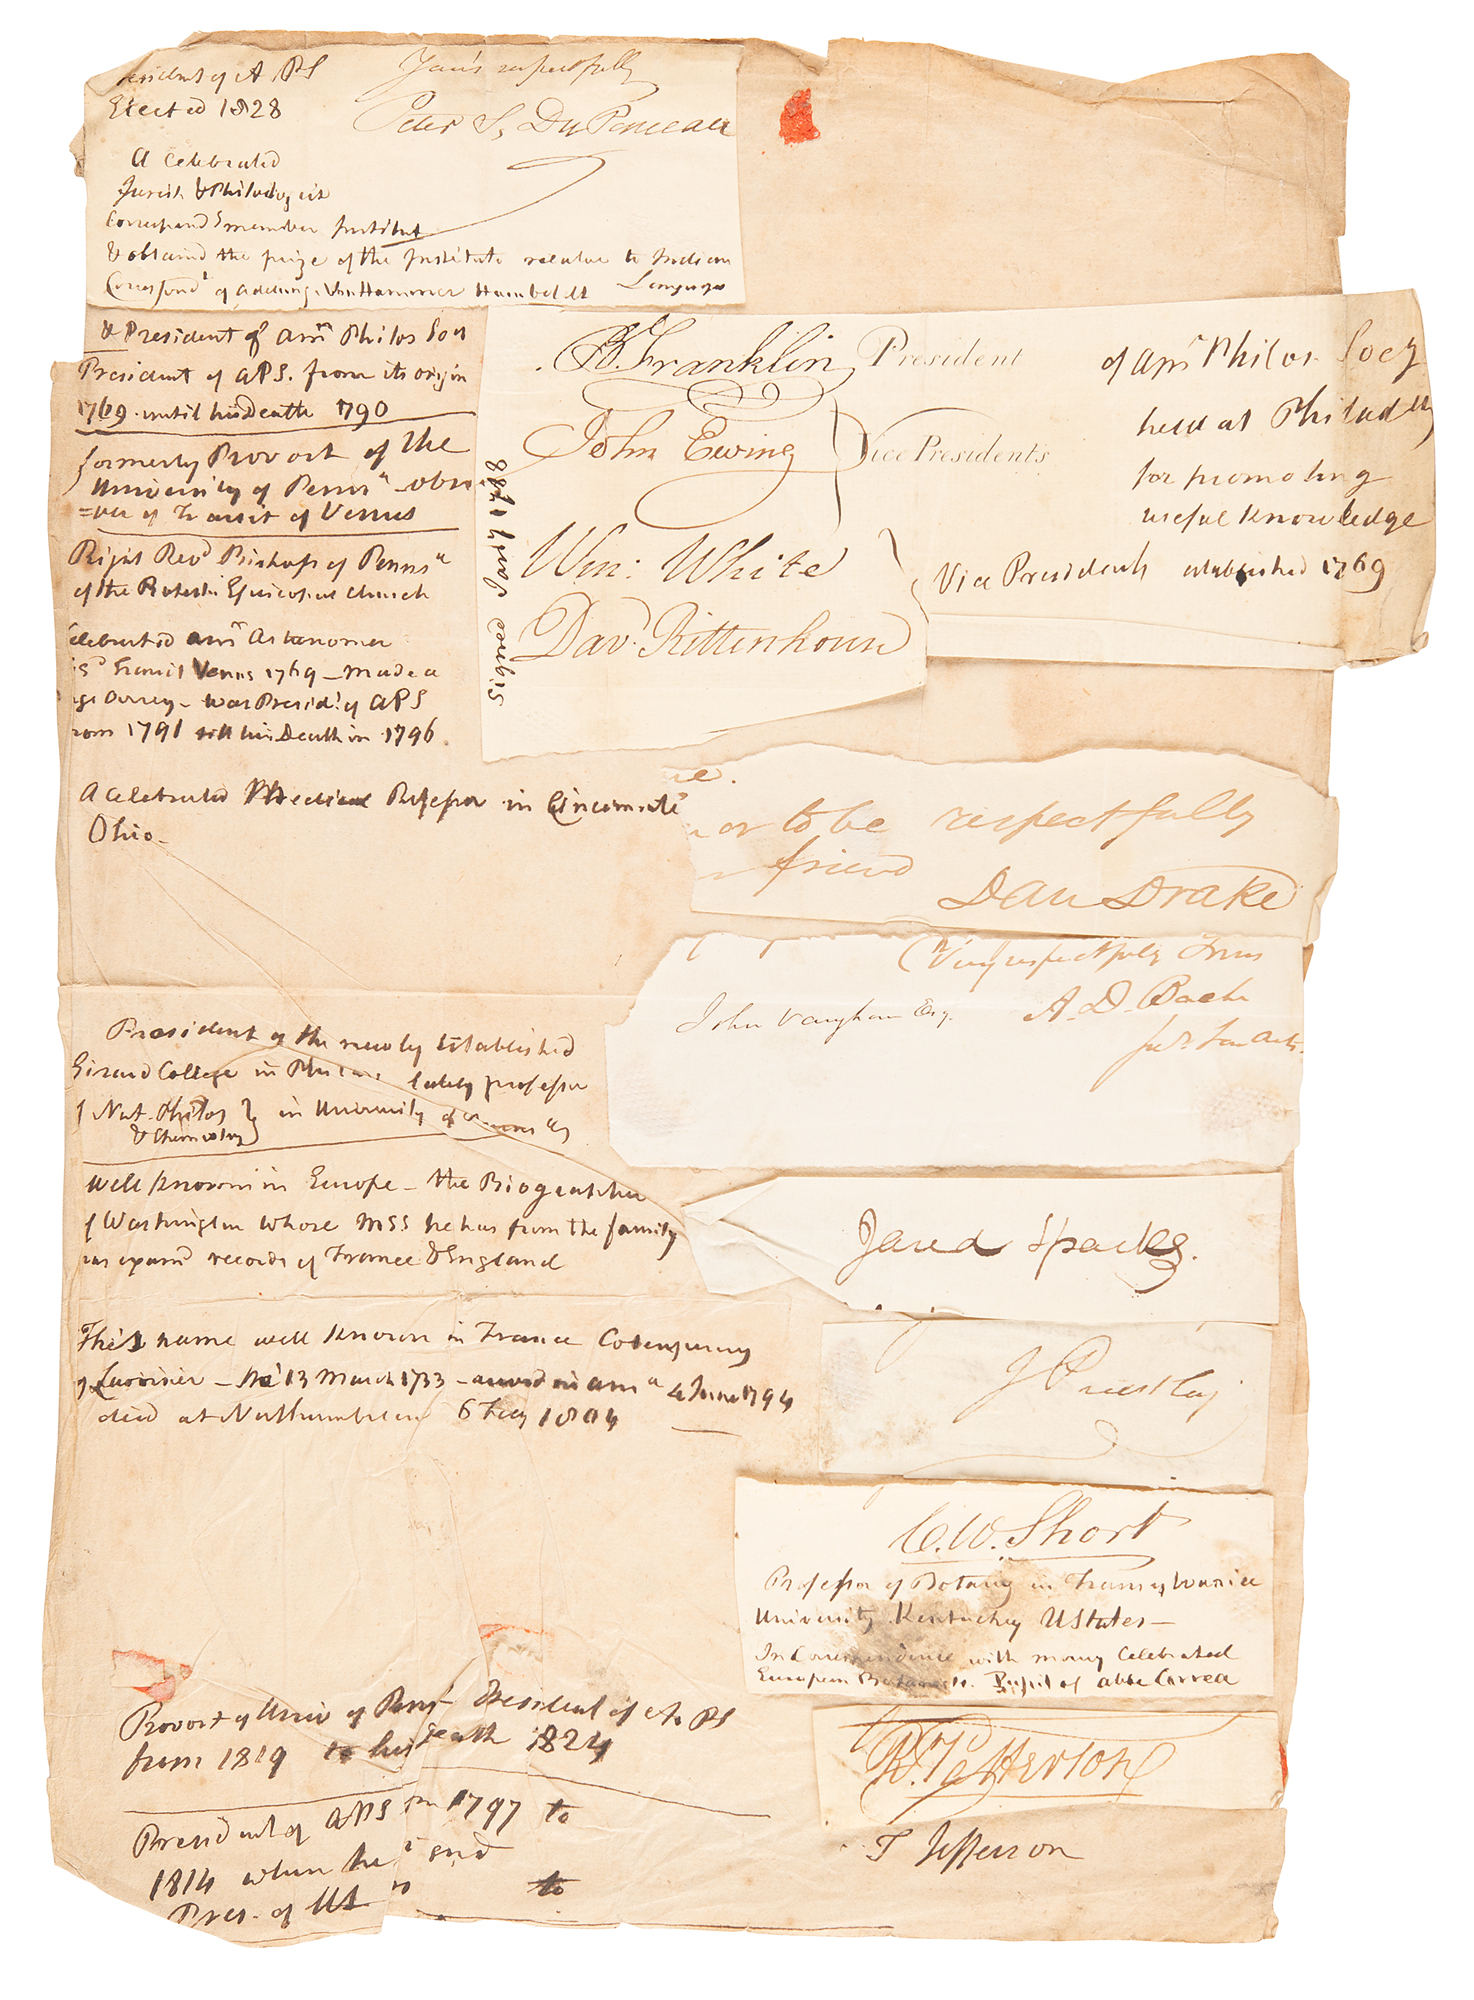 President of A PS
Elected 1828
Your's respectfully
Peter S, Du Ponceau
A celebrated
Jurist & Philologist
Correspond.g member Institut
& obtained the prize of the Institute relative to Indian
Languages
Correspond.t of Adelung, Von Hammer Humboldt
& President of Amn Philos Socy
President of APS. from its origin
1769 until his Death 1790
formerly Provost of the
University of Penns.a obser
=ver of Transit of Venus
Right Rev.d Bishop of Penns.a
of the Protest.t Episcopal Church
Celebrated Amn Astronomer
Transit Venus 1769 - Made a
Orrery - was Presid.t of APS
from 1791 till his Death in 1796.
B. Franklin, President
John Ewing
Vice Presidents
Wm: White
Dav.d Rittenhouse
of Amn Philos Socy
held at Philad
for promoting
useful Knowledge
Vice Presidents established 1769
Signed 1788
A celebrated Medical Professor in Cincinnati
Ohio-
ue.
or to be respectfully
friend
Dan Drake
Very respectfully Yours
A. D. Bache
John Vaughan Esq.
President of the newly Established
Girard College in lately professor
of Nat. Philos
& Chemistry
in University of
Well Known in Europe - the Biographer
of Washington whose MSS he has from the family
has exam.d records of France & England
This name well known in France Cotemporary
of Lavoisier - 13 March 1733 - arrived in Am.a 4 June 1794
died at Northumberland 6 Feby 1804
Jared Sparks.
J Priestley
C. W. Short
Professor of Botany in Transylvania
University Kentuckey UStates -
In Correspondence with many Celebrated
European Botanists. Pupil of abbe Correa
Provost of Univ of Pens.a President of Am PS
from 1819 to his Death 1824
R. Patterson
President of APS in 1797 to
1814 when he
Pres. of
to
T Jefferson